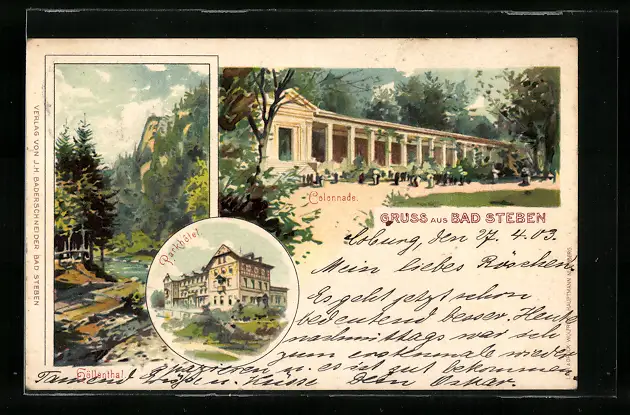 VERLAG VON J.H. BADERSCHNEIDER BAD STEBEN
Colonnade.
GRUSS AUS BAD STEBEN
Parkhôtel
Höllenthal
Coburg, den 27. 4. 03.
Mein liebes Röschen!
Es geht jetzt schon
bedeutend besser. Heute
nachmittags war ich
zum erstenmale wieder
spazieren u. es ist gut bekommen
Tausend Grüße u. Küsse Dein Oskar.